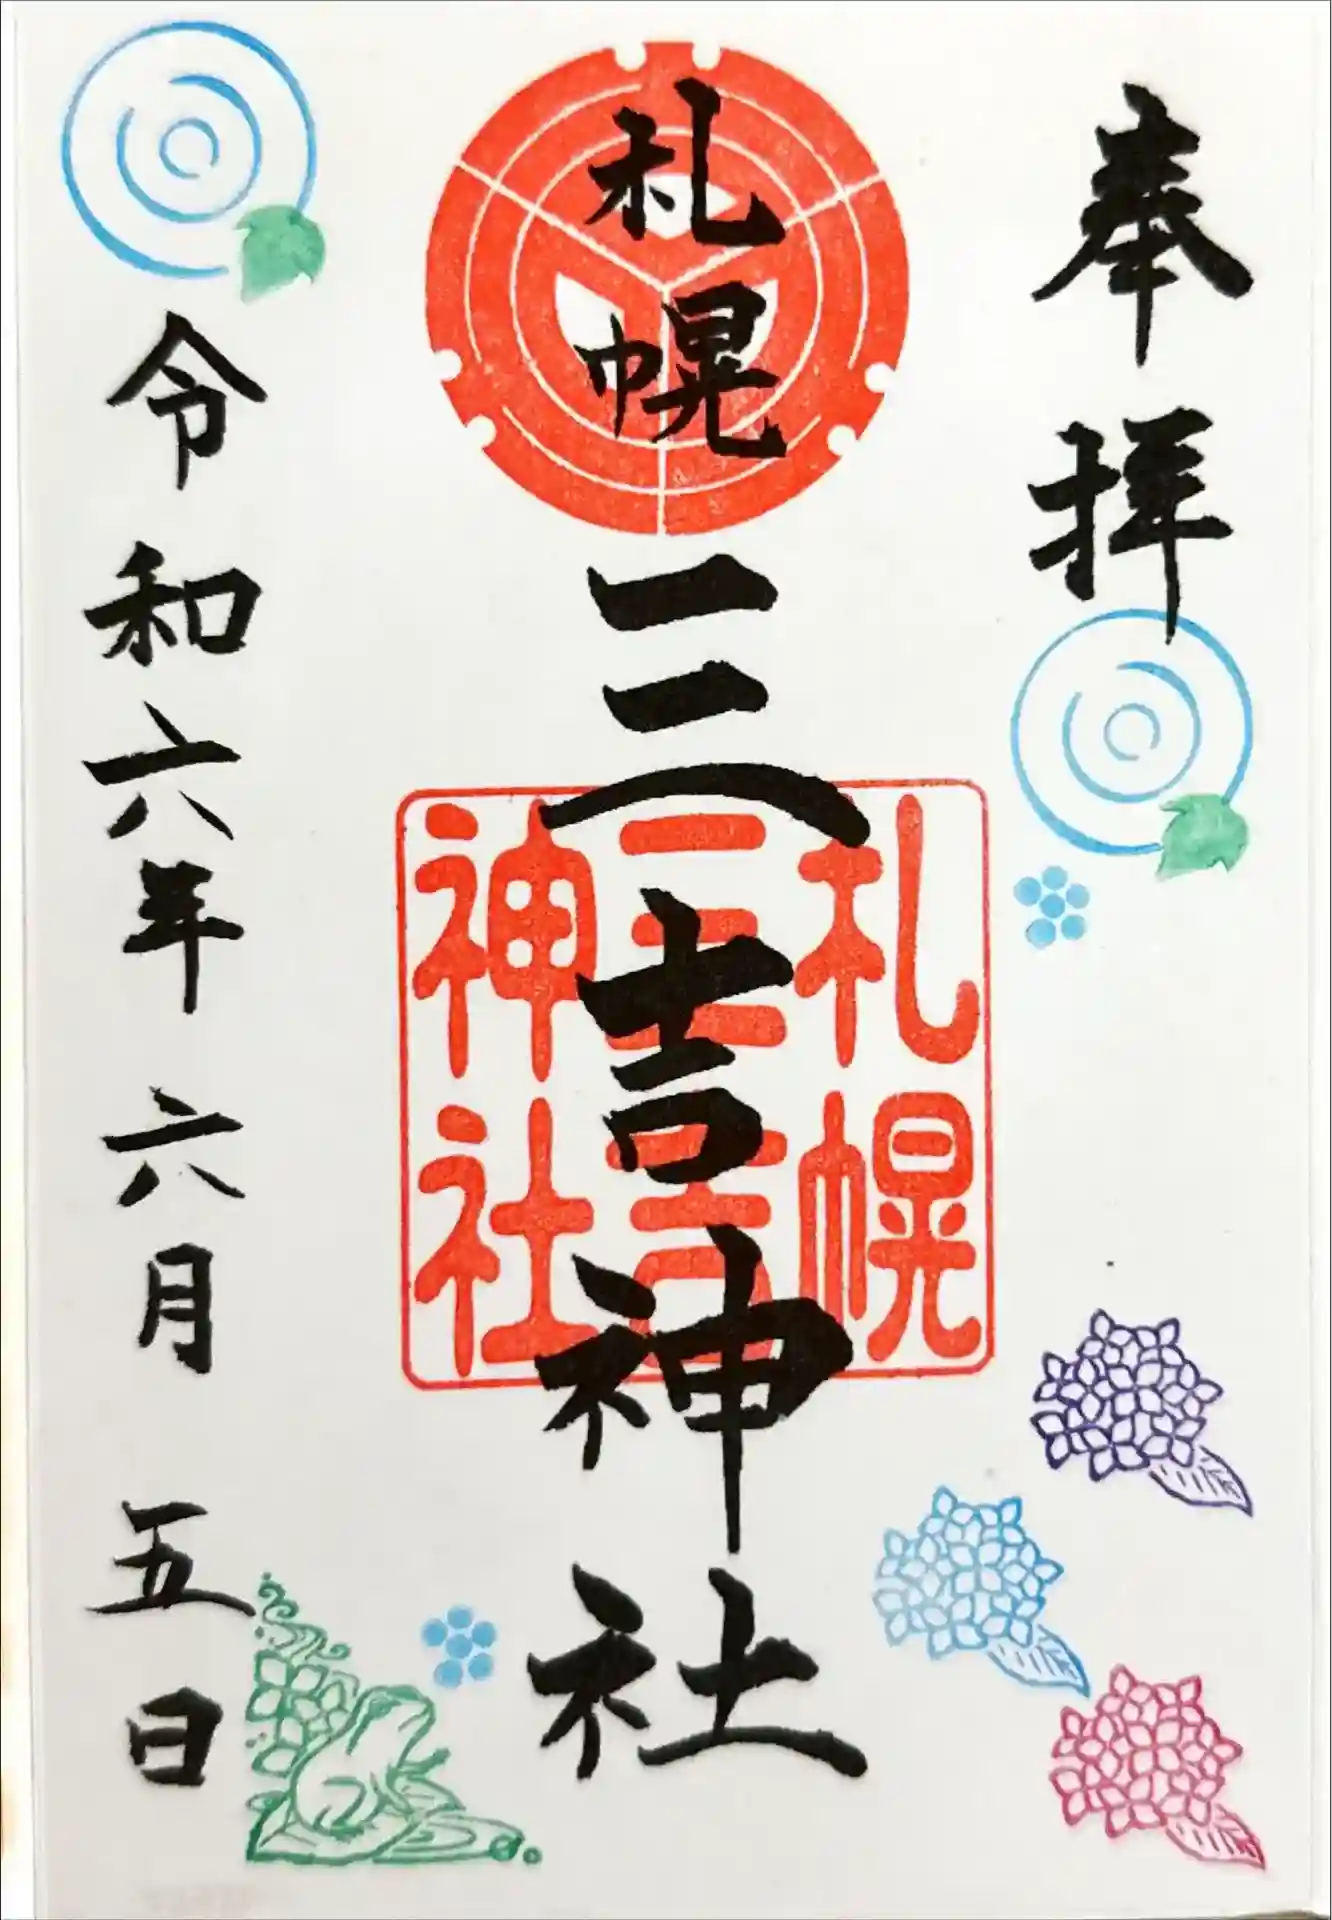 奉拝
札幌三吉神社
札幌
三吉
神社
令和六年六月五日